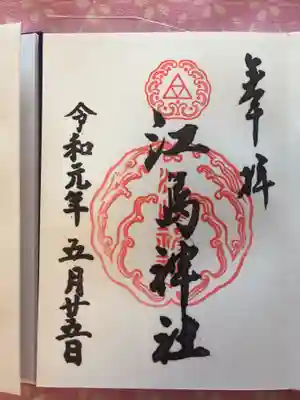 奉拝
江島神社
令和元年 五月廿五日